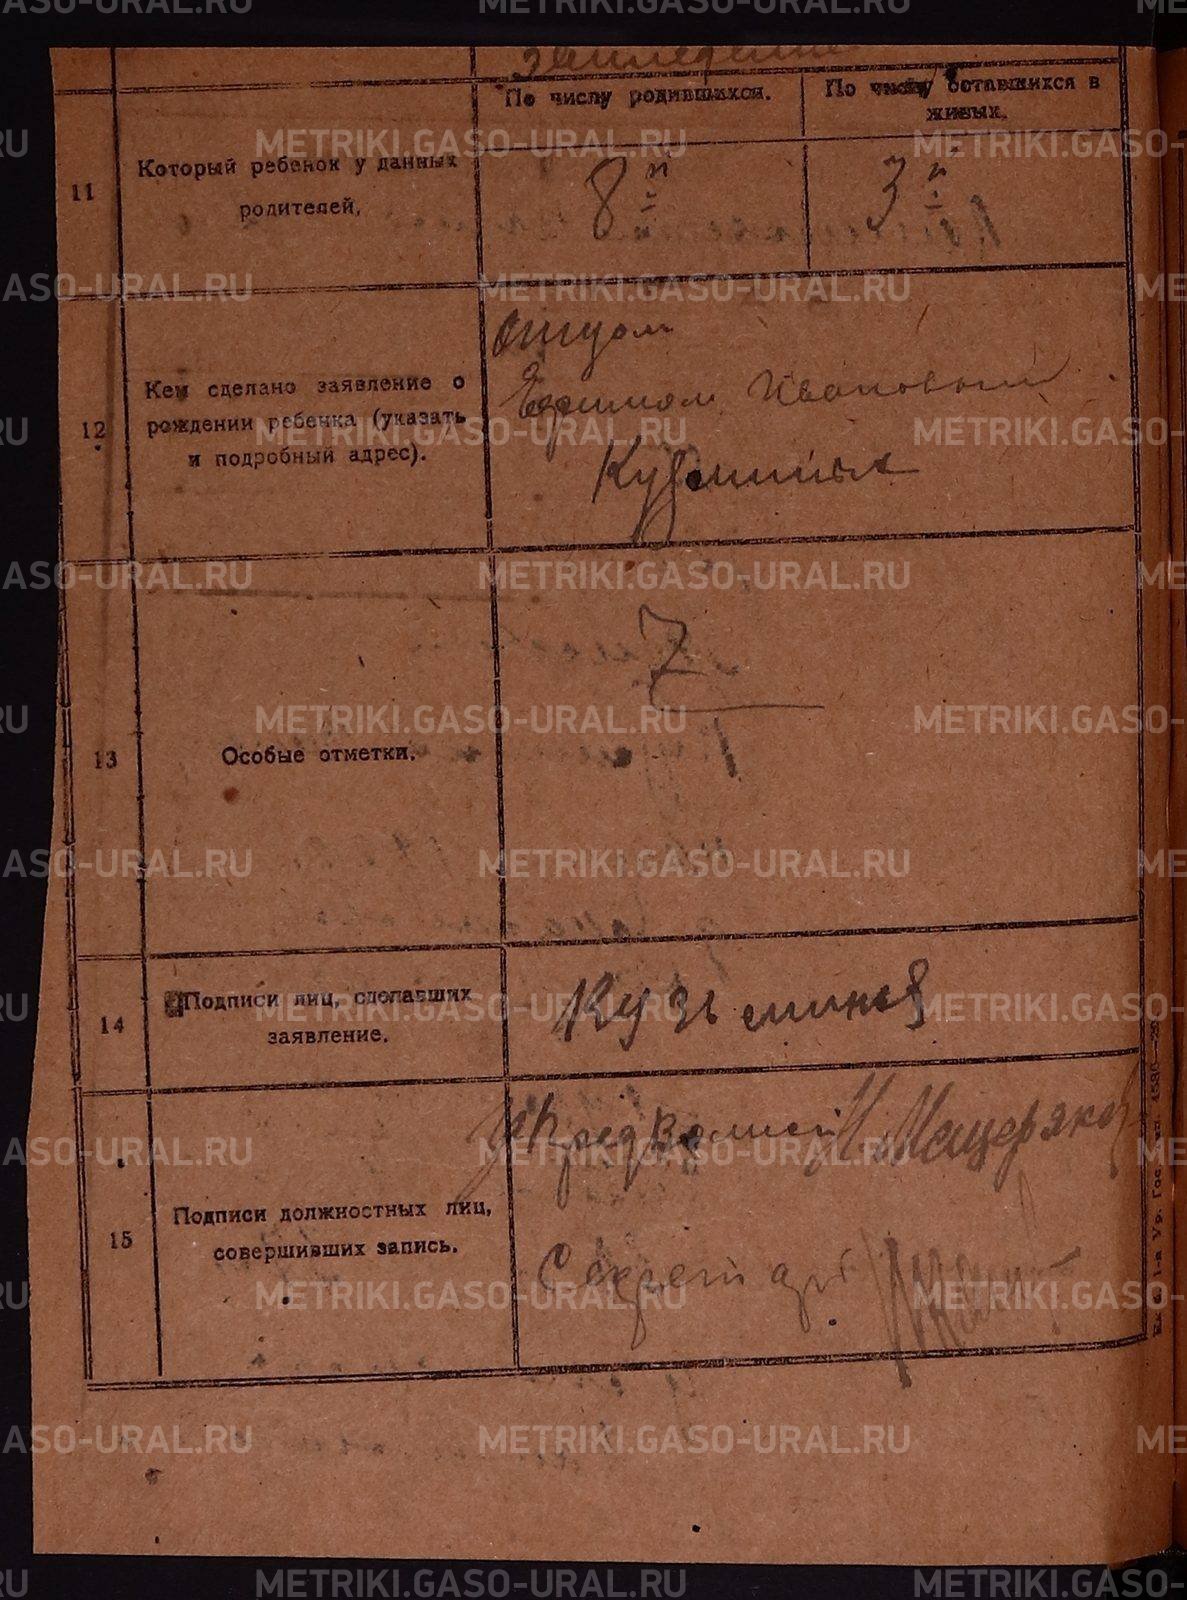 земледелие
По числу родившихся.
По числу оставшихся в
живых.
11
Который ребенок у данных
родителей.
8й
3й
12
Кем сделано заявление о
рождении ребенка (указать
и подробный адрес).
отцом
Ефимом Ивановым
Кузьминых
13
Особые отметки.
14
Подписи лиц, сделавших
заявление.
Кузьминых
15
Подписи должностных лиц,
совершивших запись.
Мещеряков
Секретарь
METRIKI.GASO-URAL.RU